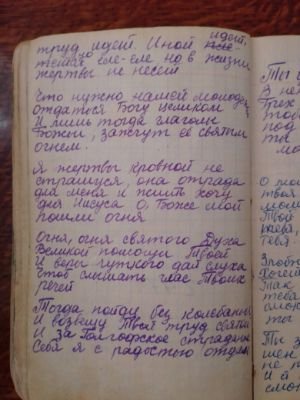 идет,
труд ищет. Иной
еле-еле но в жизни
жертвы не несет
Что нужно нашей молодеж
отдаться Богу целиком
И лишь тогда глаголы
Божьи, зажгут ее святым
огнем.
Я жертвы кровной не
страшуся, она отрада
для меня и жить хочу
для Иисуса О, Боже мой
пошли огня
Огня, огня святого Духа
Великой помощи Твоей
И веры чуткого дай слуха
Чтоб слышать глас Твоих
речей
Тогда пойду без колебани
И возвещу Твой труд святой
И за Голгофские страдань
Себя я с радостью отдам
Ты
В ней
Грех
под
ты
О мо
твоя
Твой
тебя
Хочет
Так
тебя
смо
ты
Ты з
шен
не
И я
смо